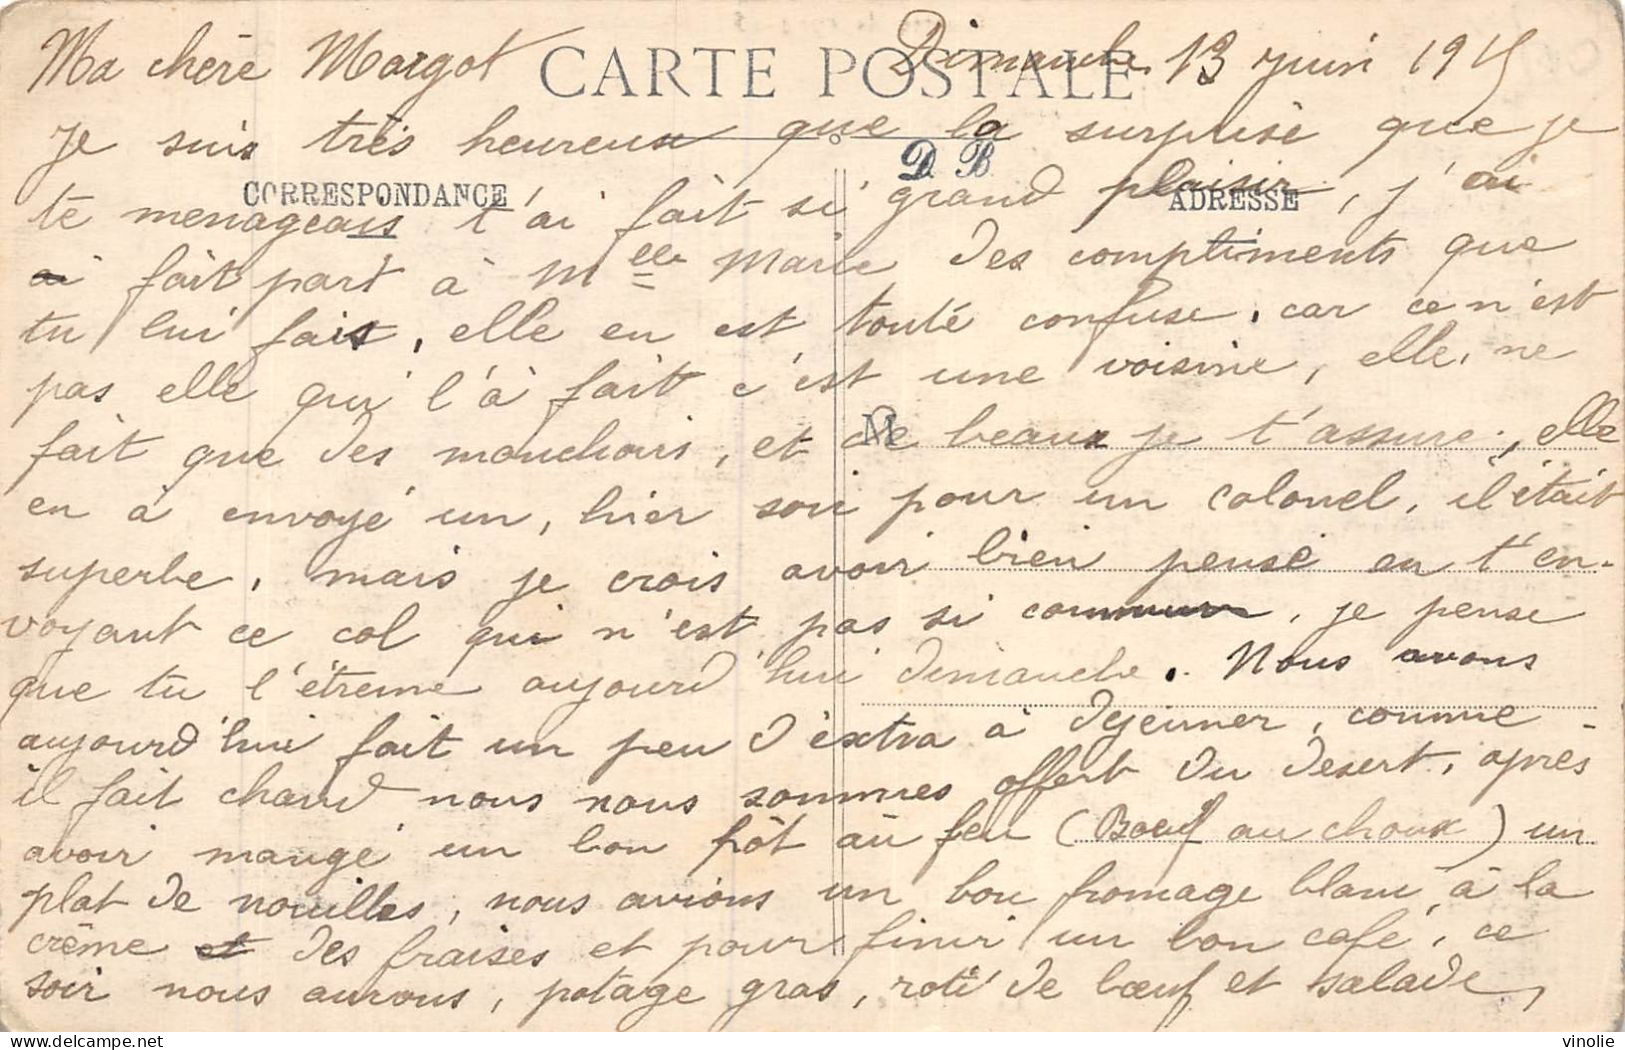 Ma chère Margot CARTE POSTALE Dimanche 13 Juin 1915
Je suis très heureux que la surprise que je
D B
CORRESPONDANCE ADRESSE
te menageais t'ai fait si grand plaisir, j'ai
ai fait part à Melle Marie des compliments que
tu lui fais, elle en est touté confuse, car ce n'est
pas elle qui l'à fait c'est une voisine, elle, ne
fait que des mouchoirs, et de beaux je t'assure, elle
M
en à envoyé un, hier soir pour un colonel, il était
superbe, mais je crois avoir bien pensé en t'en-
voyant ce col qui n'est pas si commun, je pense
que tu l'étrenne aujourd'hui dimanche. Nous avons
aujourd'hui fait un peu d'extra à dejeuner, comme
il fait chaud nous nous sommes offert du desert, après
avoir mangé un bon pôt au feu (Boeuf au choux) un
plat de nouilles, nous avions un bon fromage blanc, à la
crême et des fraises et pour finir un bon café, ce
soir nous aurons, potage gras, roti de bœuf et salade,
vinolie // delcampe.net